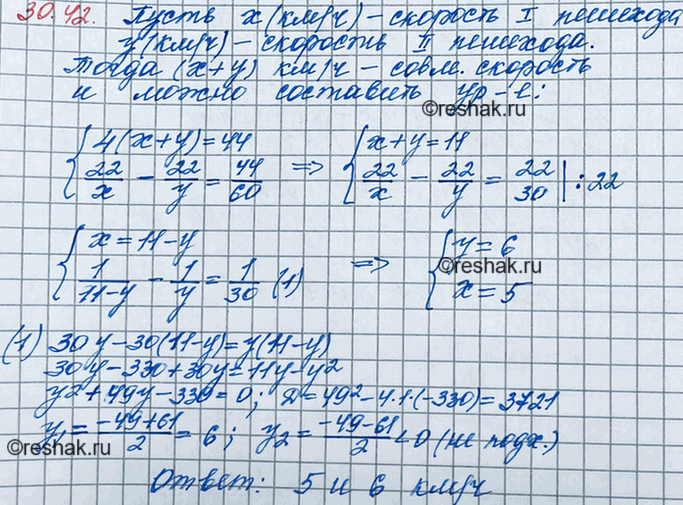 30.42. Пусть x(км/ч) – скорость I пешехода
y(км/ч) – скорость II пешехода.
Тогда (x+y) км/ч – совм. скорость
и можно составить ур-е:
©reshak.ru
{ 4(x+y)=44 => { x+y=11
22/x - 22/y = 44/60 22/x - 22/y = 22/30 | :22
{ x=11-y => { y=6
©reshak.ru
1/(11-y) - 1/y = 1/30 (1) x=5
(1) 30y-30(11-y)=y(11-y)
30y-330+30y=11y-y²
y²+49y-330=0; Д=49²-4·1·(-330)=3721
y₁=(-49+61)/2=6; y₂=(-49-61)/2<0 (не подх.)
©reshak.ru
Ответ: 5 и 6 км/ч